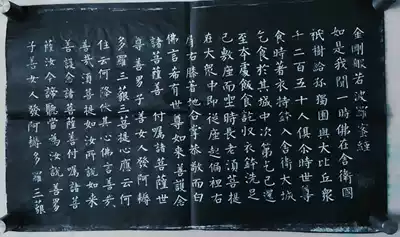 金剛般若波羅蜜經
如是我聞一時佛在舍衛國
祇樹給孤獨園與大比丘衆
千二百五十人俱尒時世尊
食時著衣持鉢入舍衛大城
乞食於其城中次第乞已還
至本處飯食訖收衣鉢洗足
已敷座而坐時長老須菩提
在大衆中即從座起偏袒右
肩右膝著地合掌恭敬而白
佛言希有世尊如來善護念
諸菩薩善付囑諸菩薩世
尊善男子善女人發阿耨
多羅三藐三菩提心應云何
住云何降伏其心佛言善哉
善哉須菩提如汝所說如來
善護念諸菩薩善付囑諸菩
薩汝今諦聽當為汝說善男
子善女人發阿耨多羅三藐